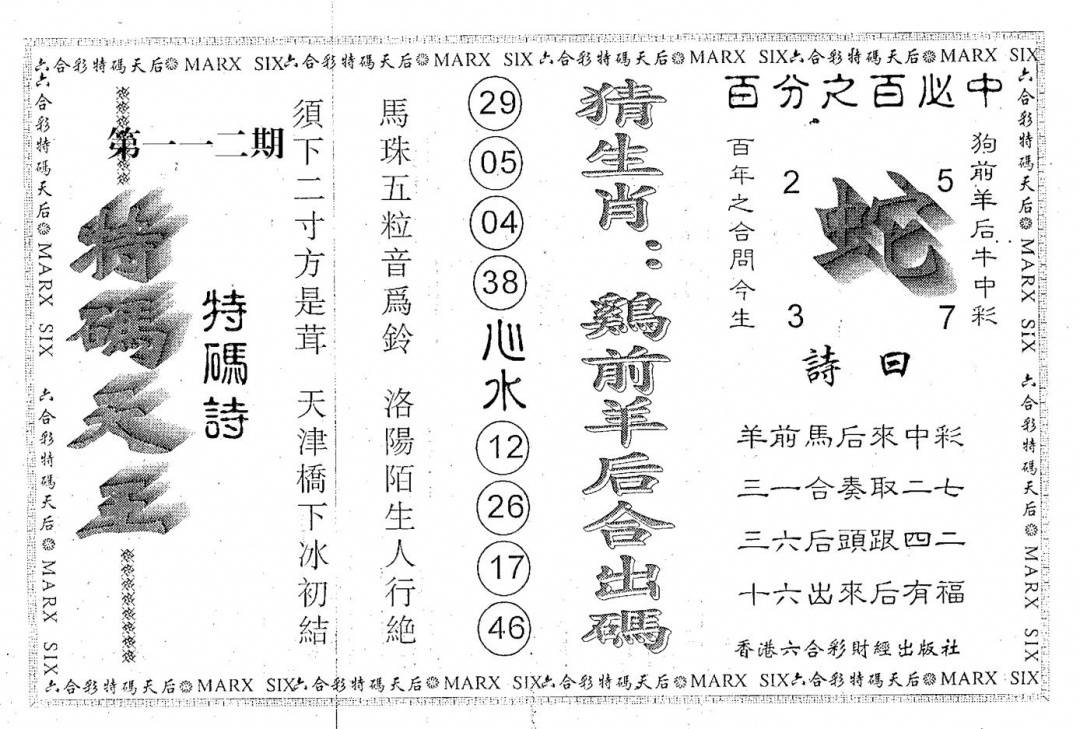 六合彩特碼天后 MARX SIX六合彩特碼天后 MARX SIX六合彩特碼天后 MARX SIX六合彩特碼天后 MARX SIX
百分之百必中
狗前羊后牛中彩
2 5
蛇
3 7
百年之合問今生
詩曰
羊前馬后來中彩
三一合奏取二七
三六后頭跟四二
十六出來后有福
香港六合彩財經出版社
猜生肖：鷄前羊后合出碼
29
05
04
38
心水
12
26
17
46
馬珠五粒音爲鈴 洛陽陌生人行絶
須下二寸方是茸 天津橋下冰初結
特碼詩
第一一二期
特碼天王
六合彩特碼天后 MARX SIX 六合彩特碼天后 MARX SIX
六合彩特碼天后 MARX SIX 六合彩特碼天后 MARX SIX
六合彩特碼天后 MARX SIX六合彩特碼天后 MARX SIX六合彩特碼天后 MARX SIX六合彩特碼天后 MARX SIX